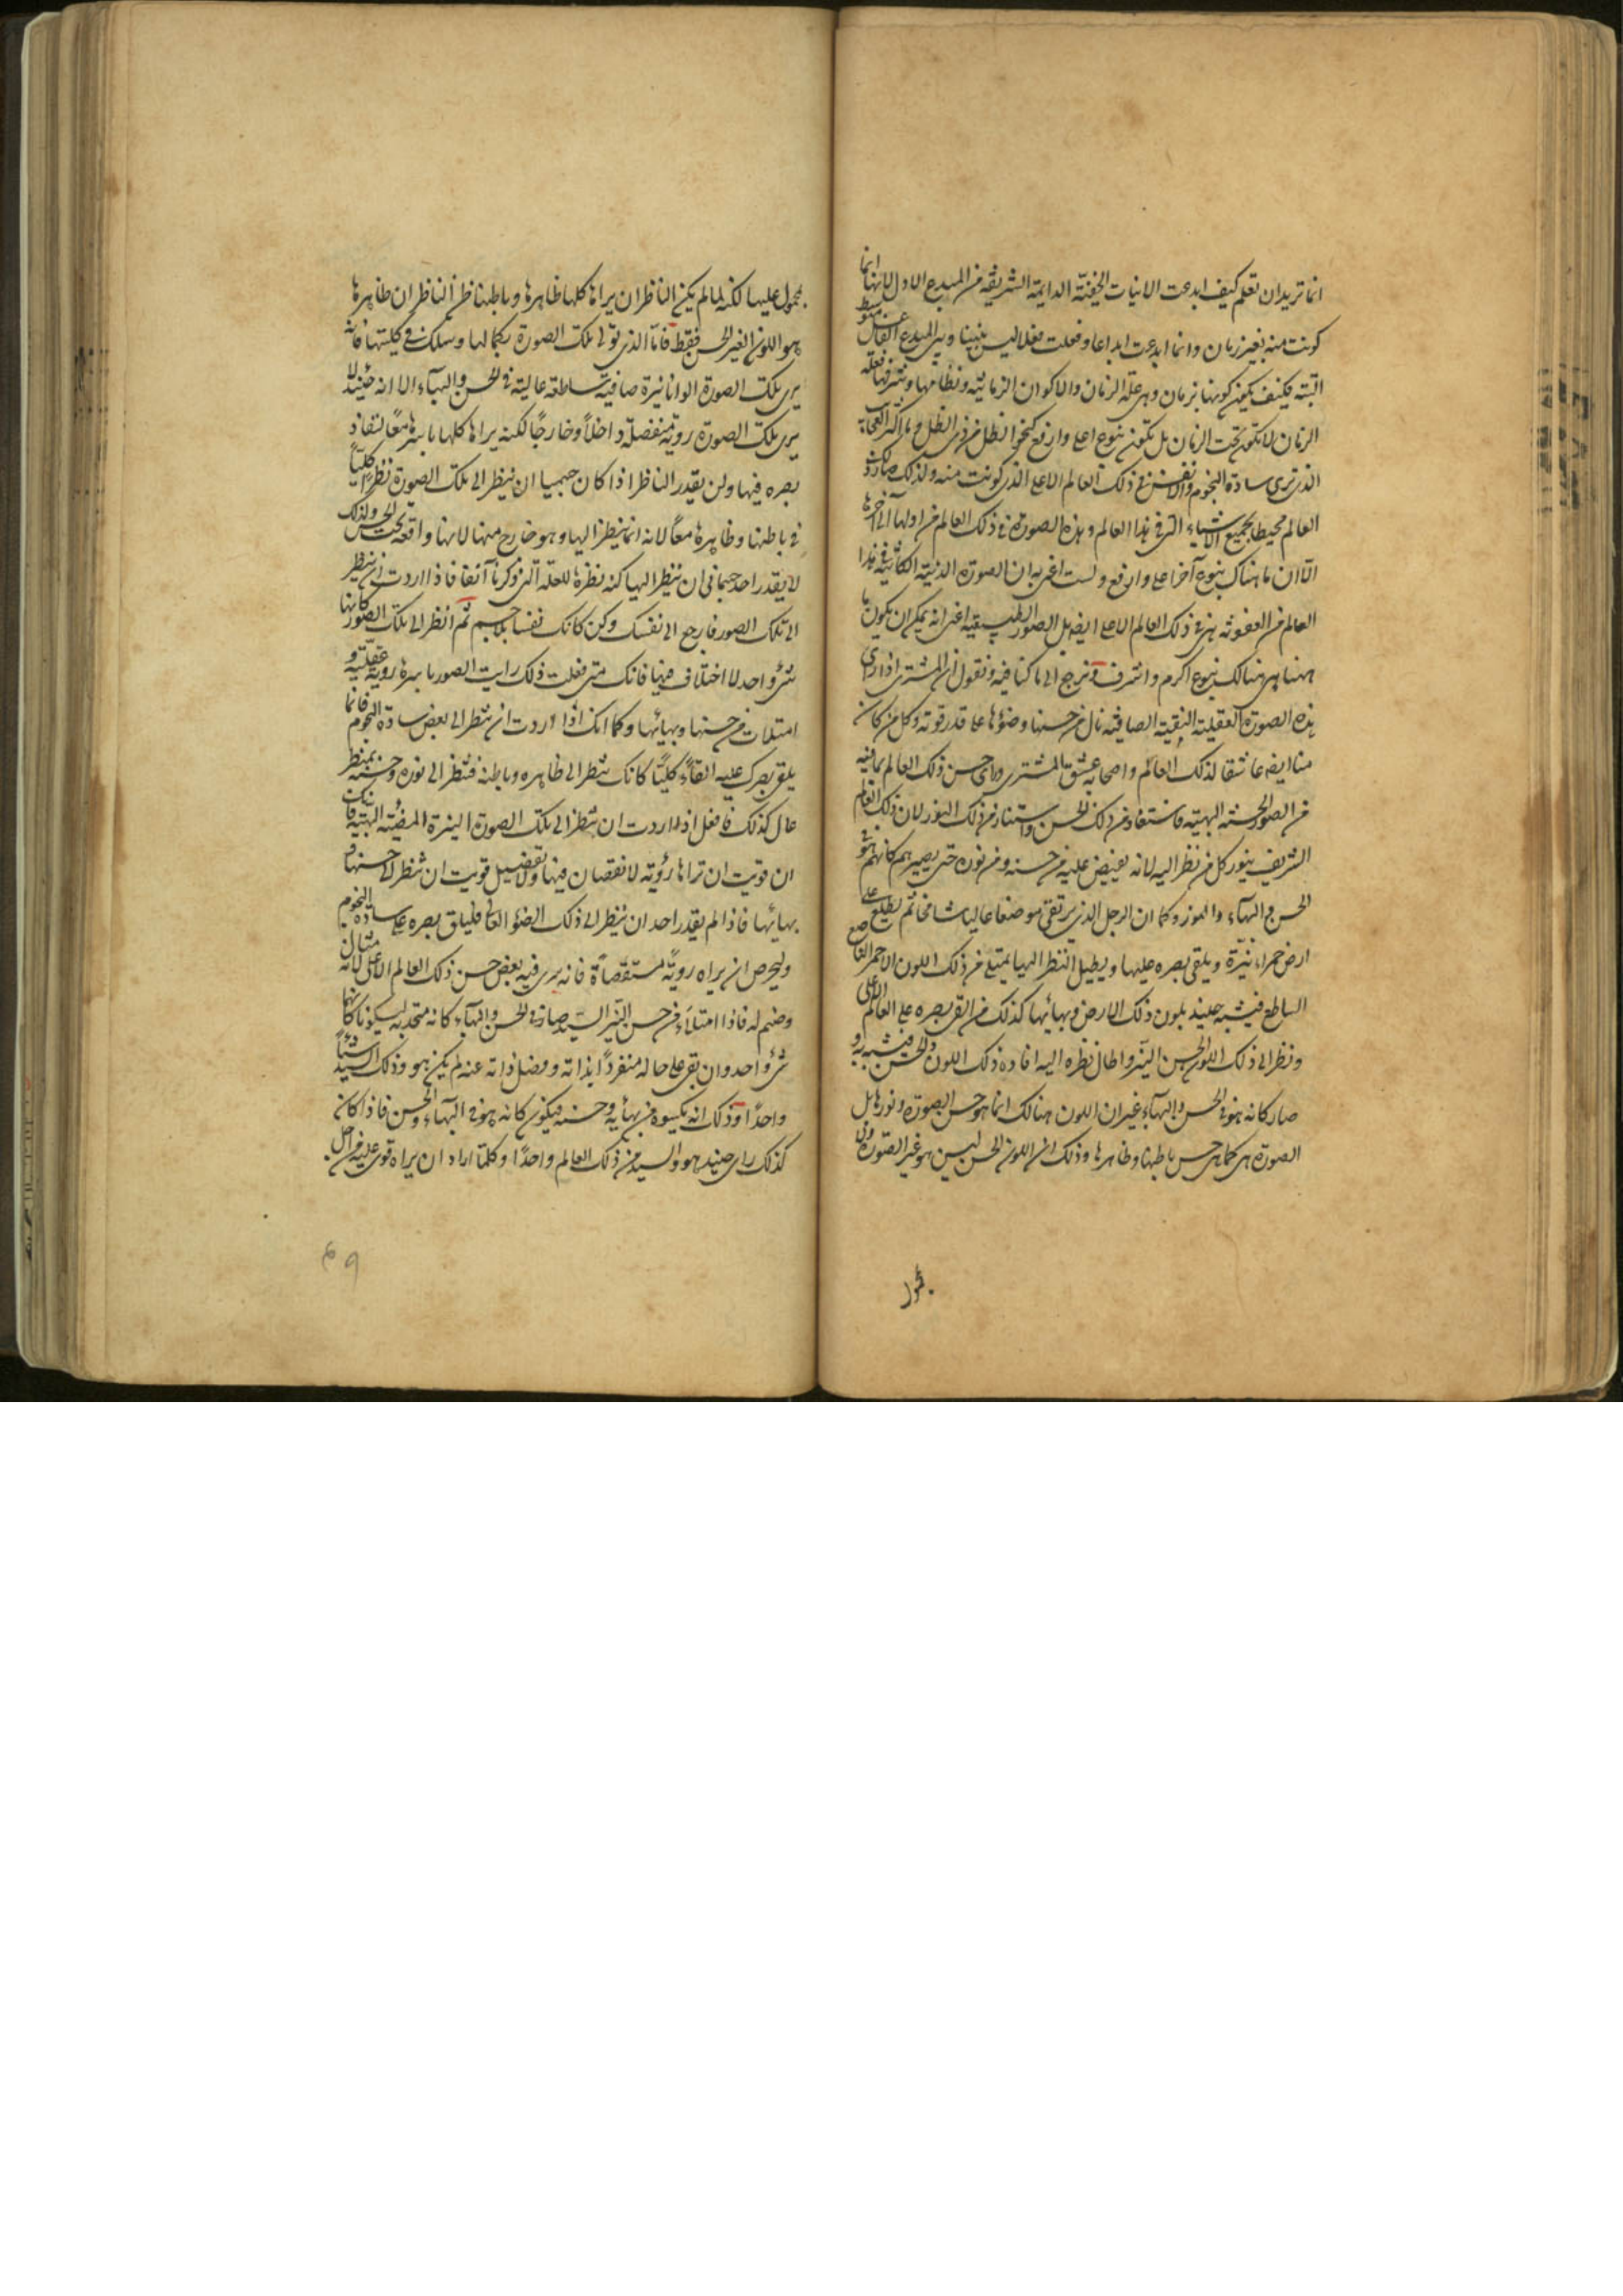 انما تريد ان تعلم كيف ابدعت الانيات الخفية الدايمة الشريفة من المبدع الاول لانها انما
كونت منه بغير زمان وانما ابدعت ابداعا وفعلت فعلا ليس بينها وبين المبدع الفاعل متوسط
البتة فكيف يكون كونها بزمان وهى علة الزمان والاكوان الزمانية ونظامها وشرفها فعلة
الزمان لا تكون تحت الزمان بل تكون بنوع اعلى وارفع كنحو الظل من ذى الظل وما اكثر العجايب
الذى ترى سادة النجوم والانفس فى ذلك العالم الاعلى الذى كونت منه ولذلك صار ذلك
العالم محيطا بجميع الاشياء التى فى هذا العالم وهذه الصورة فى ذلك العالم من اولها الى آخرها
الا ان ما هناك بنوع آخر اعلى وارفع ولست اعنى به ان الصورة الدنية الكائنة فى هذا
العالم من العفونة هى فى ذلك العالم الاعلى ايضا بل الصور الطبيعية اعنى انه يمكن ان يكون ما
ههنا هى هنالك بنوع اكرم واشرف ونرجع الى ما كنا فيه ونقول ان المشترى اذا راى
هذه الصورة العقلية النقية الصافية نال من حسنها وضوئها على قدر قوته وكل من كان
منا ايضا عاشقا لذلك العالم واصحابه عشق المشترى وراى حسن ذلك العالم بما فيه
من الصور الحسنة البهية فاستفاد من ذلك الحسن واستنار من ذلك النور لان ذلك العالم
الشريف ينور كل من نظر اليه لانه يفيض عليه من حسنه ومن نوره حتى يصيرهم كانهم هو فى
الحسن والبهآء والنور وكما ان الرجل الذى يرتقى موضعا عاليا شامخا ثم يطلع على
ارض حمراء نيّرة ويلقى بصره عليها ويطيل النظر اليها يمتلئ من ذلك اللون الاحمر الناصع
الساطع فيتشبه حينئذ بلون ذلك الارض وبهائها كذلك من القى بصره على العالم الاعلى
ونظر الى ذلك اللون الحسن النيّر واطال نظره اليه افاده ذلك اللون والحسن فيشبه به و
صار كانه هو فى الحسن والبهآء غير ان اللون هنالك انما هو حسن الصورة ونورها بل
الصورة هى كما هى حسن باطنها وظاهرها وذلك ان اللون الحسن ليس هو غير الصورة ولا
محمول
محمول عليها لكنه لما لم يكن الناظر ان يراها كلها ظاهرها وباطنها ظن الناظر ان ظاهرها
هو اللون الغير الحسن فقط فامّا الذى تولى تلك الصورة بكمالها وسلك فى كليتها فانه
يرى تلك الصورة الوانا نيرة صافية ساطعة عالية فى الحسن والبهآء الا انه حينئذ لا
يرى تلك الصورة روية منفصلة داخلًا وخارجًا لكنه يراها كلها باسرها معًا لنفاذ
بصره فيها ولن يقدر الناظر اذا كان جسميا ان ينظر الى تلك الصورة نظرا كليّاً
فى باطنها وظاهرها معًا لانه انما ينظر اليها وهو خارج منها لانها واقعة تحت الحس ولذلك
لا يقدر احد جسمانى ان ينظر اليها كنه نظره للعلة التى ذكرنا آنفا فاذا اردت ان تنظر
الى تلك الصور فارجع الى نفسك وكن كانك نفسا بلا جسم ثم انظر الى تلك الصور كانها
شئ واحد لا اختلاف فيها فانك متى فعلت ذلك رايت الصور باسرها روية عقلية و
امتلات من حسنها وبهائها وكما انك اذا اردت ان تنظر الى بعض سادة النجوم فانما
يلقى بصرك عليه القآءً كليًّا كانك تنظر الى ظاهره وباطنه فتنظر الى نوره وحسنه بمنظر
عال كذلك فافعل اذا اردت ان تنظر الى تلك الصورة النيرة المضيئة البهية فانك
ان قويت ان تراها رؤية لا نقصان فيها ولا تفصيل قويت ان تنظر الى حسنها و
بهائها فاذا لم يقدر احد ان ينظر الى ذلك الضوء العالى فليلق بصره على سادة النجوم
وليحرص ان يراه رويةً مستقصاةً فانه يرى فيه بعض حسن ذلك العالم الاعلى لانه مثال
وصنم له فاذا امتلآء من حسن النيّر السيّد صار فى الحسن والبهآء كانه متحد به ليكونا كانهما
شئ واحد وان بقى على حاله منفردًا بذاته وفصل ذاته عنه لم يكن هو وذلك السيّد شيئاً
واحدًا وذلك انه يكسوه من بهائه وحسنه فيكون كانه هو فى البهآء والحسن فاذا كان
كذلك راى حينئذ هو والسيد من ذلك العالم واحدًا وكلما اراد ان يراه قوى عليه من اجل